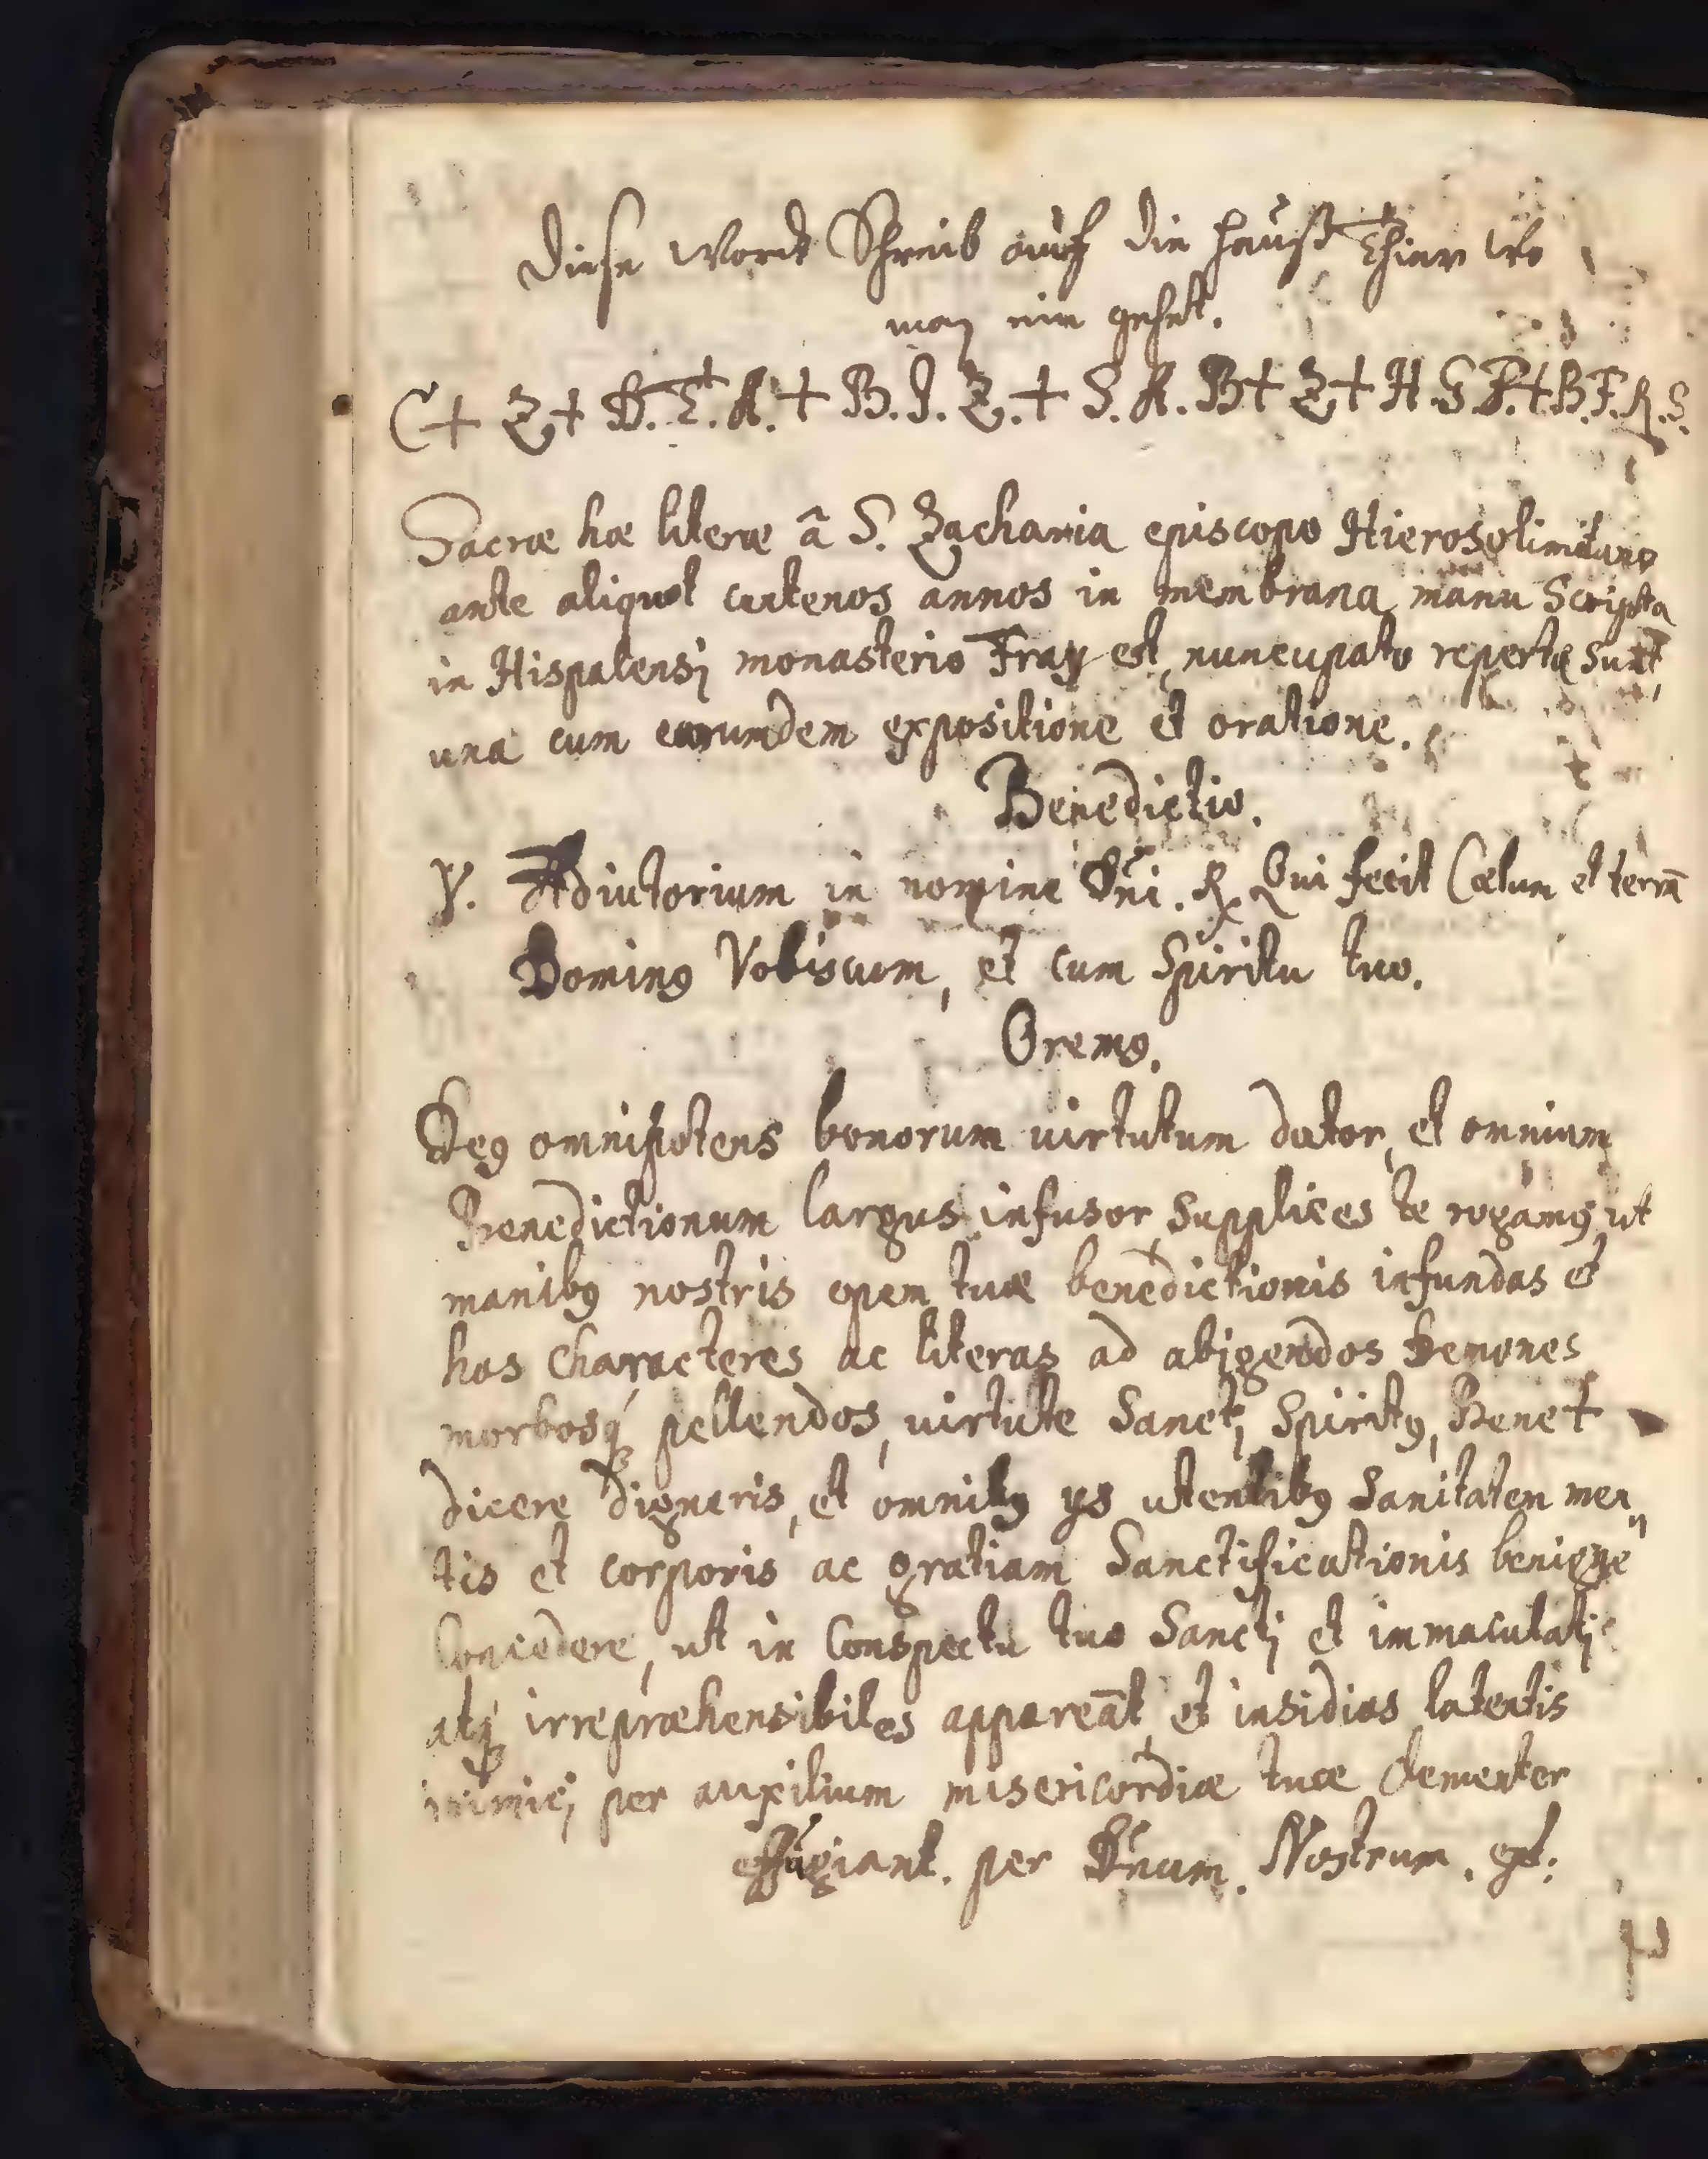 Diese Wordt Schreib auff die hauß Thier wo
man ein gehet.
C + Z + D.I.A. + B.I.Z. + S.A.B + Z + H.G.F. + B.F.R.S.
Sacræ hæ literæ â S. Zacharia episcopo Hierosolimitano
ante aliquot centenos annos in membrana manu Scripta
in Hispalensi monasterio Fray est, nuncupato repertæ Sunt,
una cum earumdem expositione et oratione.
Benedictio.
℣. Adiutorium in nomine Dñi. ℟ Qui fecit Cœlum et terrā
Dominꝰ Vobiscum, et cum Spiritu tuo.
Oremꝰ.
Deꝰ omnipotens bonorum virtutum dator, et omnium
Benedictionum largus infusor, Supplices te rogamꝰ, ut
manibꝰ nostris opem tuæ benedictionis infundas et
hos Characteres ac literas ad abigendos Demones
morbosq́ pellendos, virtute Sancti Spiritꝰ, Bene +
dicere digneris, et omnibꝰ ys utentibꝰ Sanitatem men„
tis et corporis ac gratiam Sanctificationis benigne
Concedere, ut in Conspectu tuo Sancti et immaculati
atq́ irrepræhensibiles appareāt, et insidias latentis
inimici per auxilium misericordiæ tuæ Clementer
effugiant. per Dñum. Nostrum. ect: